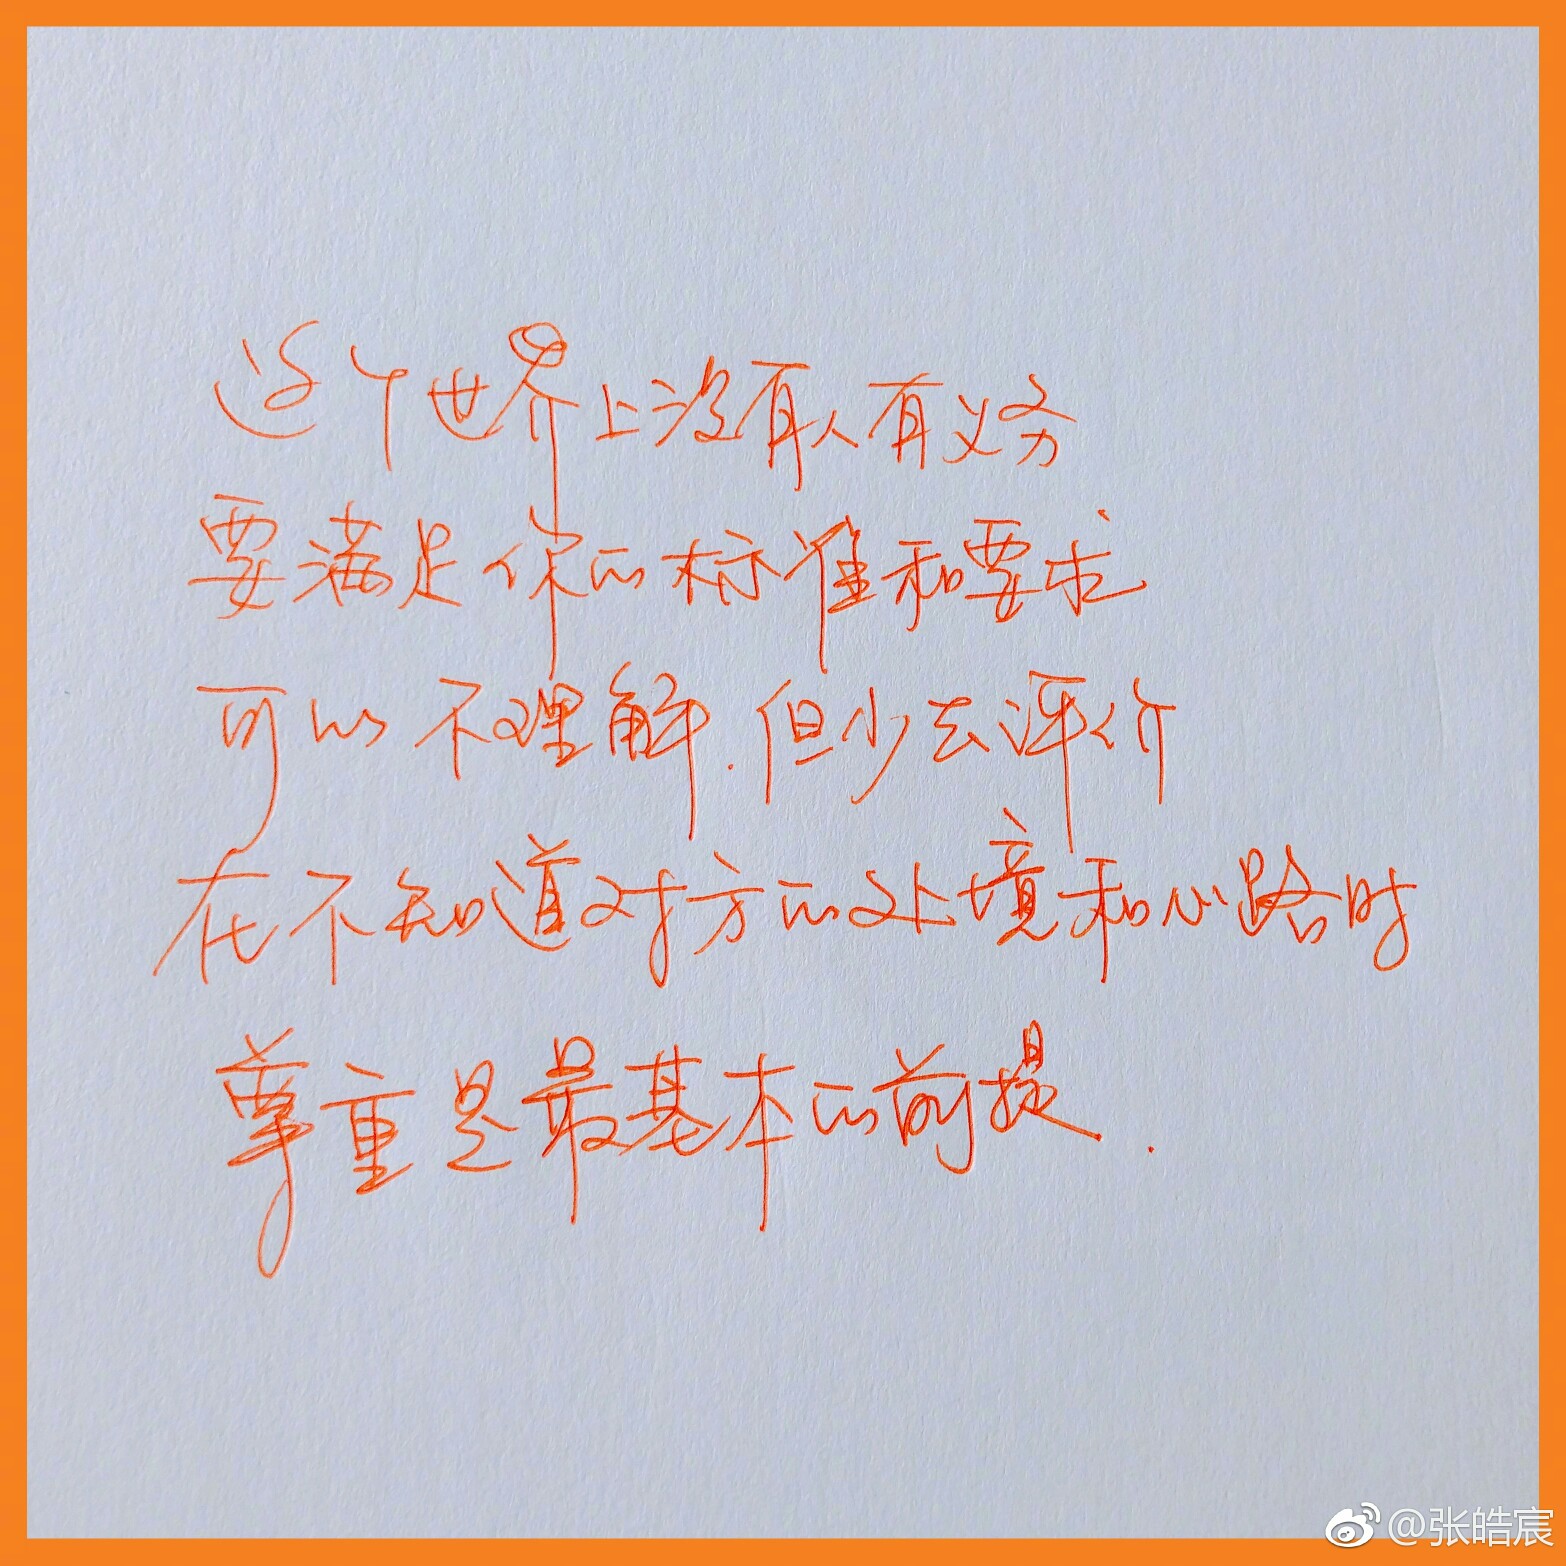 这个世界上没有人有义务
要满足你的标准和要求
可以不理解.但少去评价
在不知道对方的处境和心路时
尊重是最基本的前提.
@张皓宸